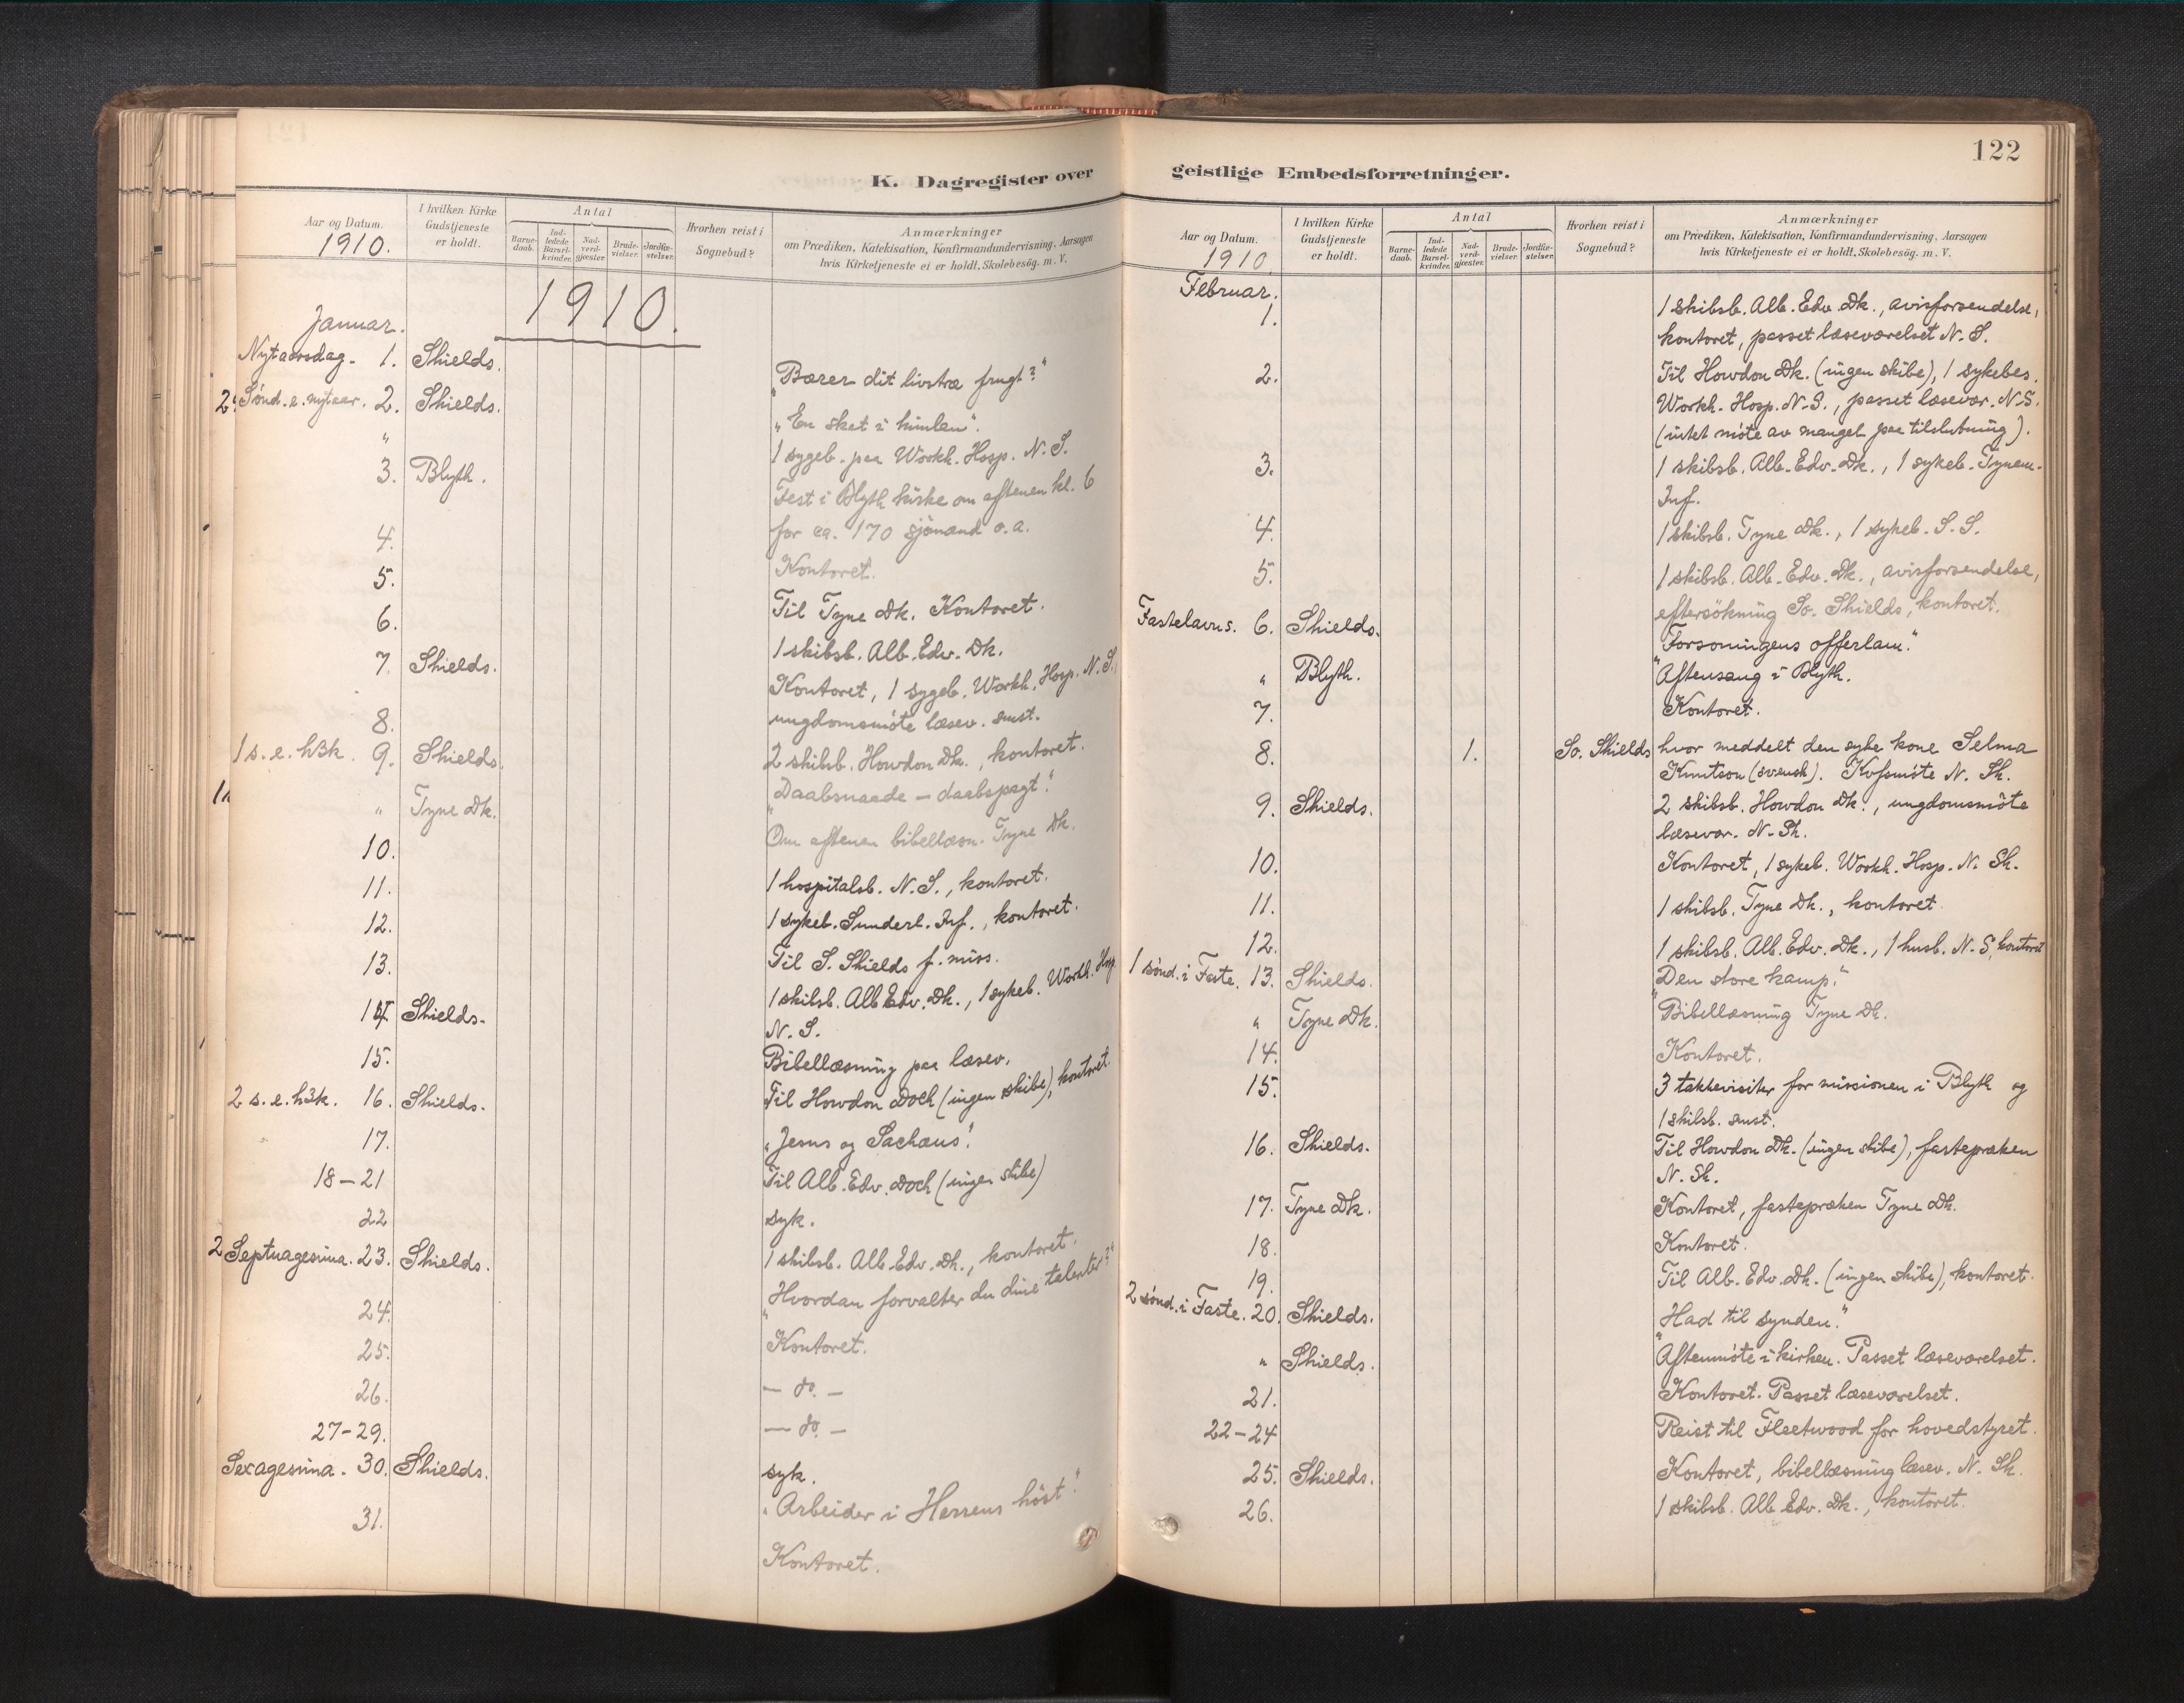 122
K. Dagregister over geistlige Embedsforretninger.
Aar og Datum.
1910.
I hvilken Kirke Gudstjeneste er holdt.
Antal
Barne-daab.
Ind-ledede Barsel-kvinder.
Nad-verd-gjæster.
Brude-vielser.
Jordfæ-stelser.
Hvorhen reist i Sognebud?
Anmærkninger
om Prædiken, Katekisation, Konfirmandundervisning, Aarsagen
hvis Kirketjeneste ei er holdt, Skolebesög. m. V.
1910.
Januar.
Nytaarsdag. 1. Shields. "Bærer dit livstræ frugt?"
Sönd. e. nytaar. 2. Shields. "En skat i himlen".
" 1 sygeb. paa Workh. Hosp. N. S.
3. Blyth. Fest i Blyth kirke om aftenen kl. 6
for ca. 170 sjömænd o.a.
4. Kontoret.
5. Til Tyne Dk. Kontoret.
6. 1 skibsb. Alb. Edw. Dk.
7. Shields. Kontoret, 1 sygeb. Workh. Hosp. N. S.,
ungdomsmöte læsev. smst.
8. 2 skibsb. Howdon Dk., kontoret.
1 s. e. h3k. 9. Shields. "Daabsnaade – daabspagt".
" Tyne Dk. Om aftenen bibellæsn. Tyne Dk.
10. 1 hospitalsb. N. S., kontoret.
11. 1 sykeb. Sunderl. Inf., kontoret.
12. Til S. Shields f. miss.
13. 1 skibsb. Alb Edw. Dk., 1 sykeb. Workh. Hosp
N. S.
14. Shields. Bibellæsning paa læsev.
15. Til Howdon Dock (ingen skibe), kontoret.
2 s. e. h3k. 16. Shields. "Jesus og Sachæus".
17. Til Alb. Edv. Dock (ingen skibe)
18-21 syk.
22 1 skibsb. Alb. Edv. Dk., kontoret.
Septuagesima. 23. Shields. "Hvordan forvalter du dine talenter?"
24. Kontoret.
25. — do. —
26. — do. —
27-29. syk.
Sexagesima. 30. Shields. "Arbeider i Herrens höst".
31. Kontoret.
Aar og Datum.
1910.
I hvilken Kirke Gudstjeneste er holdt.
Antal
Barne-daab.
Ind-ledede Barsel-kvinder.
Nad-verd-gjæster.
Brude-vielser.
Jordfæ-stelser.
Hvorhen reist i Sognebud?
Anmærkninger
om Prædiken, Katekisation, Konfirmandundervisning, Aarsagen
hvis Kirketjeneste ei er holdt, Skolebesög. m. V.
Februar.
1. 1 skibsb. Alb. Edv. Dk., avisforsendelse,
kontoret, passet læseværelset N. S.
2. Til Howdon Dk. (ingen skibe), 1 sykebes.
Workh. Hosp. N. S., passet læsevær. N.S.
(intet möte av mangel paa tilslutning).
3. 1 skibsb. Alb. Edv. Dk., 1 sykeb. Tynem.
Inf.
4. 1 skibsb. Tyne Dk., 1 sykeb. S. S.
5. 1 skibsb. Alb. Edv. Dk., avisforsendelse,
eftersökning So. Shields, kontoret.
Fastelavns. 6. Shields. "Forsoningens offerlam."
" Blyth. Aftensang i Blyth.
7. Kontoret.
8. 1. So. Shields hvor meddelt den syke kone Selma
Knutson (svensk). Kvfsmöte N. Sh.
9. Shields. 2 skibsb. Howdon Dk., ungdomsmöte
læsevær. N. Sh.
10. Kontoret, 1 sykeb. Workh. Hosp. N. Sh.
11. 1 skibsb. Tyne Dk., kontoret.
12. 1 skibsb. Alb. Edv. Dk., 1 husb. N. S, kontoret
1 sönd. i Faste. 13. Shields. "Den store kamp."
" Tyne Dk. Bibellæsning Tyne Dk.
14. Kontoret.
15. 3 takkevisiter for missionen i Blyth og
1 skibsb. smst.
16. Shields. Til Howdon Dk. (ingen skibe), fastepræken
N. Sh.
17. Tyne Dk. Kontoret, fastepræken Tyne Dk.
18. Kontoret.
19. Til Alb. Edv. Dk. (ingen skibe), kontoret.
2 sönd. i Faste. 20. Shields. "Had til synden."
" Shields. Aftenmöte i kirken. Passet læseværelset.
21. Kontoret. Passet læseværelset.
22-24 Reist til Fleetwood for hovedstyret.
25. Shields. Kontoret, bibellæsning læsev. N. Sh.
26. 1 skibsb. Alb. Edv. Dk., kontoret.